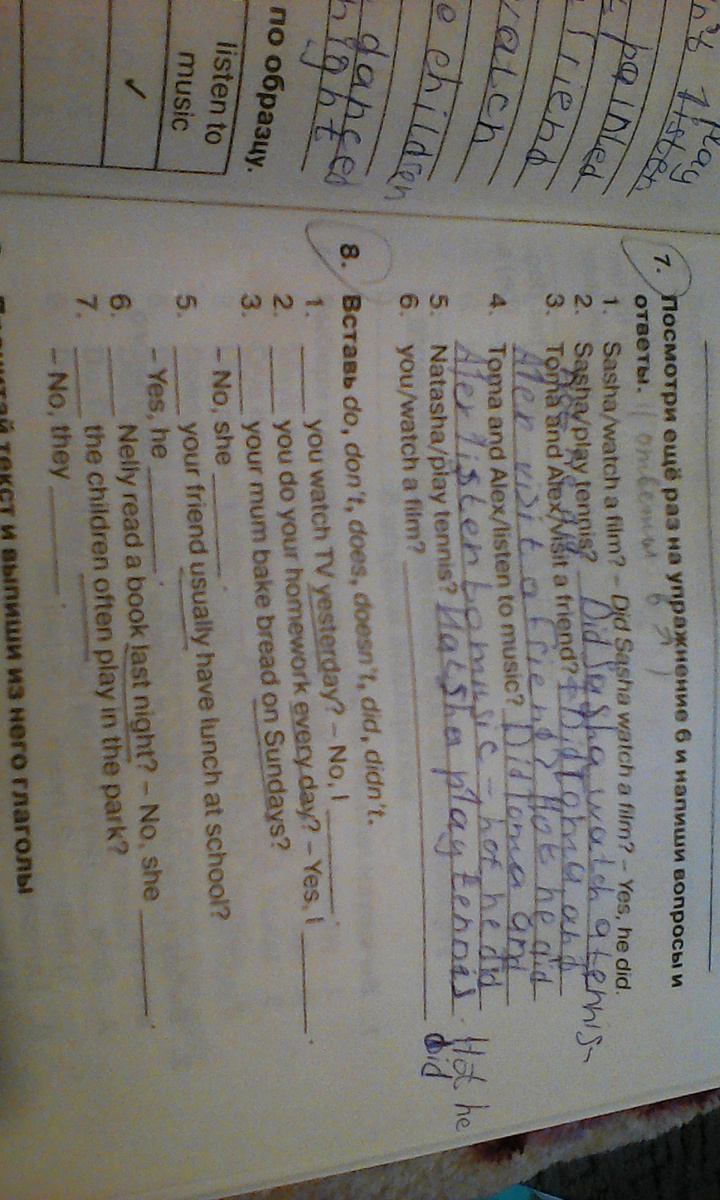 n't play
listen
painted
friend
watch
e children
danced
night
по образцу.
listen to
music
✓
7. Посмотри ещё раз на упражнение 6 и напиши вопросы и
ответы.
1. Sasha/watch a film? – Did Sasha watch a film? – Yes, he did.
2. Sasha/play tennis? Did Sasha watch a tennis
3. Toma and Alex/visit a friend? Did Toma and
Alex visit a friend? Not he did
4. Toma and Alex/listen to music? Did Toma and
Alex listen to music – not he did
5. Natasha/play tennis? Natsha play tennis. Not he
did
6. you/watch a film?
8. Вставь do, don't, does, doesn't, did, didn't.
1. ____ you watch TV yesterday? – No, I ____.
2. ____ you do your homework every day? – Yes, I ____.
3. ____ your mum bake bread on Sundays?
– No, she ____.
5. ____ your friend usually have lunch at school?
– Yes, he ____.
6. ____ Nelly read a book last night? – No, she ____.
7. ____ the children often play in the park?
– No, they ____.
текст и выпиши из него глаголы